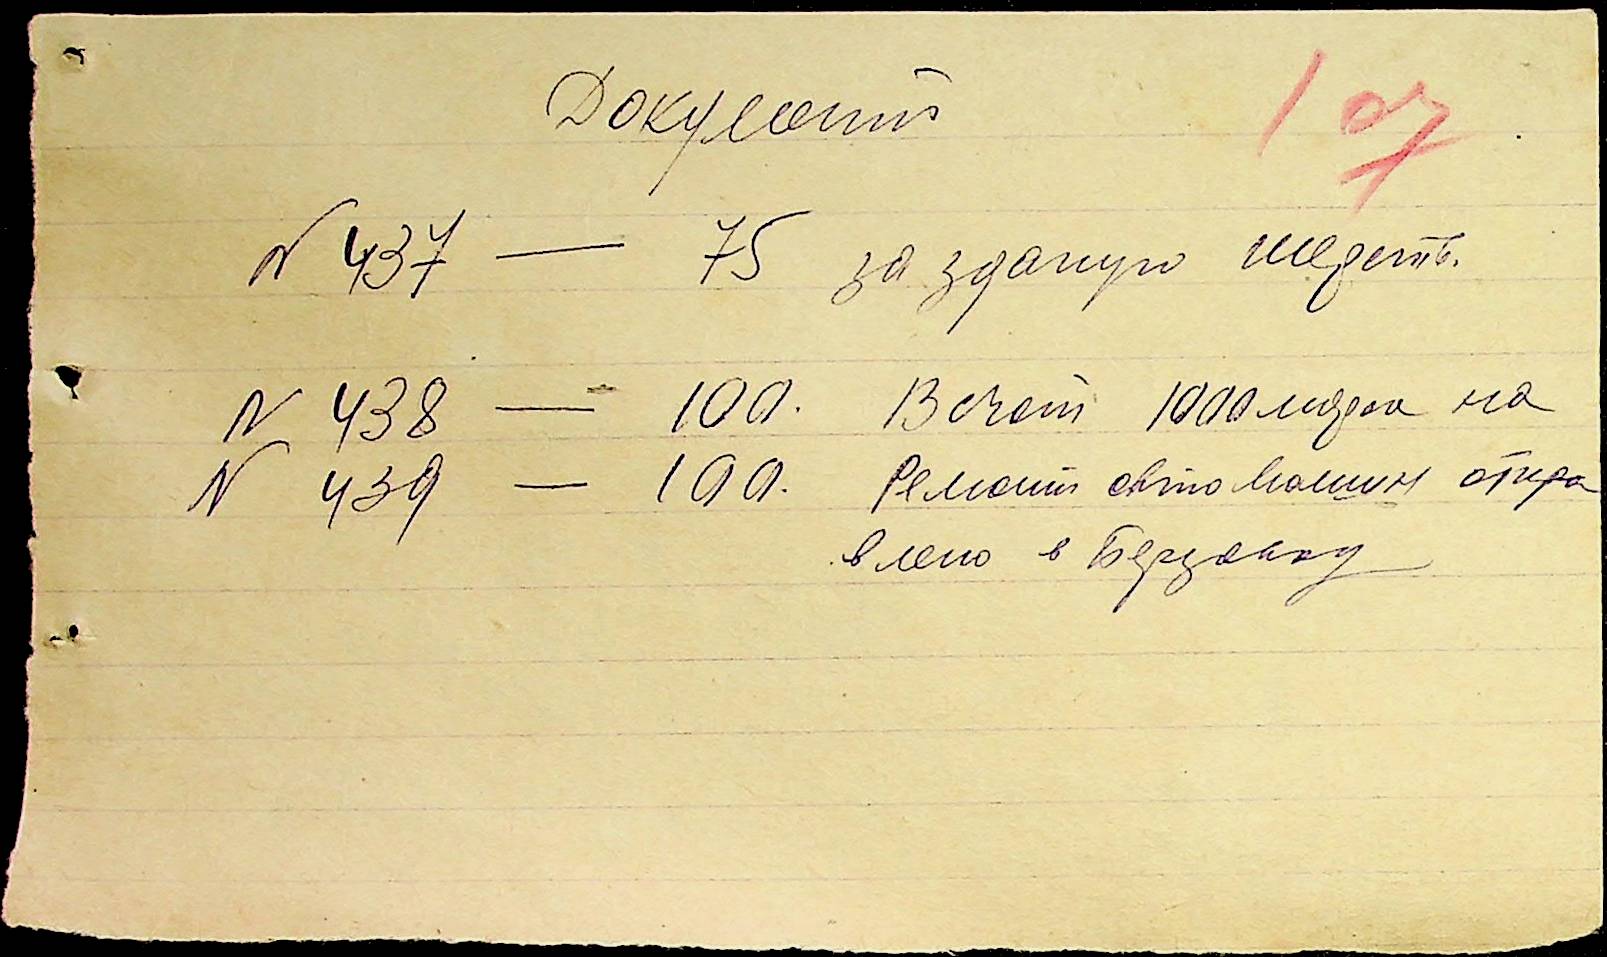 Документ 107
N 437 — 75 за зданую шерсть.
N 438 — 100. В счет 1000 марок на
N 439 — 100. Ремонт автомашин отпра
влено в